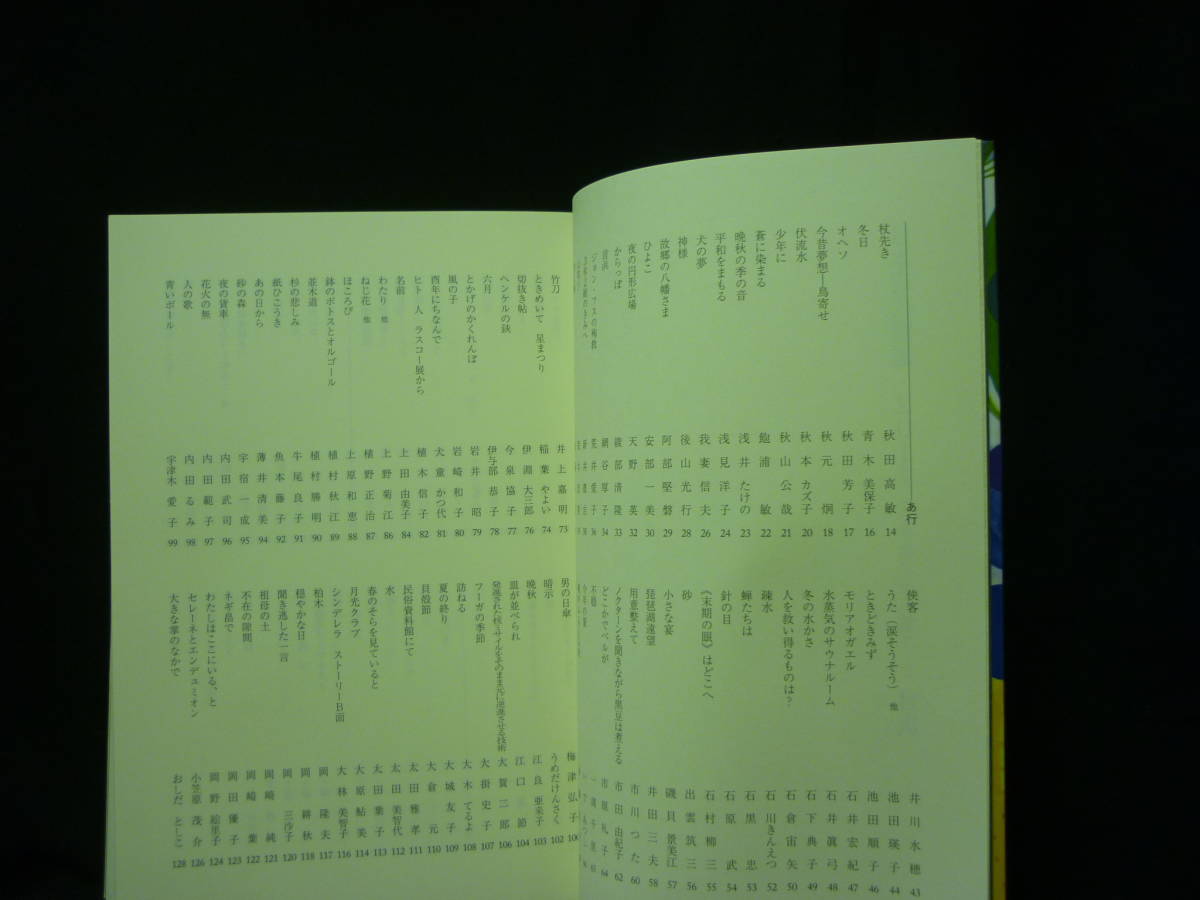 あ行
杖先き 秋田高敏 14
冬日 青木美保子 16
オヘソ 秋田芳子 17
今昔夢想―鳥寄せ 秋元炯 18
伏流水 秋本カズ子 20
少年に 秋山公哉 21
蒼に染まる 飽浦敏 22
晩秋の季の音 浅井たけの 23
平和をまもる 浅見洋子 24
犬の夢 我妻信夫 26
神様 後山光行 28
故郷の八幡さま 阿部堅磐 29
ひよこ 安部一美 30
夜の円形広場 天野英 32
からっぽ 綾部清隆 33
網谷厚子 34
荒井愛子 36
侠客 井川水穂 43
うた(涙そうそう) 他 池田瑛子 44
ときどきみず 池田順子 46
モリアオガエル 石井宏紀 47
水蒸気のサウナルーム 石井眞弓 48
冬の水かさ 石下典子 49
人を救い得るものは? 石倉宙矢 50
疎水 石川きんえつ 52
蝉たちは 石黒忠 53
針の目 石原武 54
《末期の眼》はどこへ 石村柳三 55
砂 出雲筑三 56
小さな宴 磯貝景美江 57
琵琶湖遠望 井田三夫 58
用意整えて 市川つた 60
ノクターンを聞きながら黒豆は煮える 市田由紀子 62
どこかでベルが 市堀礼子 64
竹刀 井上嘉明 73
ときめいて 星まつり 稲葉やよい 74
切抜き帖 伊淵大三郎 76
ヘンケルの鋏 今泉協子 77
六月 伊与部恭子 78
とかげのかくれんぼ 岩井昭 79
風の子 岩崎和子 80
酉年にちなんで 犬童かつ代 81
ヒト―人 ラスコー展から 植木信子 82
名前 上田由美子 84
わたり 他 上野菊江 86
ねじ花 他 植野正治 87
ほころび 上原和恵 88
鉢のポトスとオルゴール 植村秋江 89
並木道 植村勝明 90
杉の悲しみ 牛尾良子 91
紙ひこうき 魚本藤子 92
あの日から 薄井清美 94
砂の森 宇宿一成 95
夜の貨車 内田武司 96
花火の無 内田範子 97
人の歌 内田るみ 98
青いボール 宇津木愛子 99
男の日傘 梅津弘子 100
暗示 うめだけんさく 102
晩秋 江良亜来子 103
皿が並べられ 江口節 104
発進された核ミサイルをそのまま元に逆進させる技術 大賀二郎 106
フーガの季節 大掛史子 107
訪ねる 大木てるよ 108
夏の終り 大城友子 109
貝殻節 大倉元 110
民俗資料館にて 太田雅孝 111
水 太田美智代 112
春のそらを見ていると 太田葉子 113
月光クラブ 大原鮎美 114
シンデレラ ストーリーB面 大林美智子 116
柏木 岡隆夫 117
穏やかな日 岡耕秋 118
聞き逃した一言 岡三沙子 120
祖母の土 岡崎純 121
不在の隙間 岡崎葉 122
ネギ畠で 岡田優子 123
わたしはここにいる、と 岡野絵里子 124
セレーネとエンデュミオン 小笠原茂介 126
大きな掌のなかで おしだとしこ 128